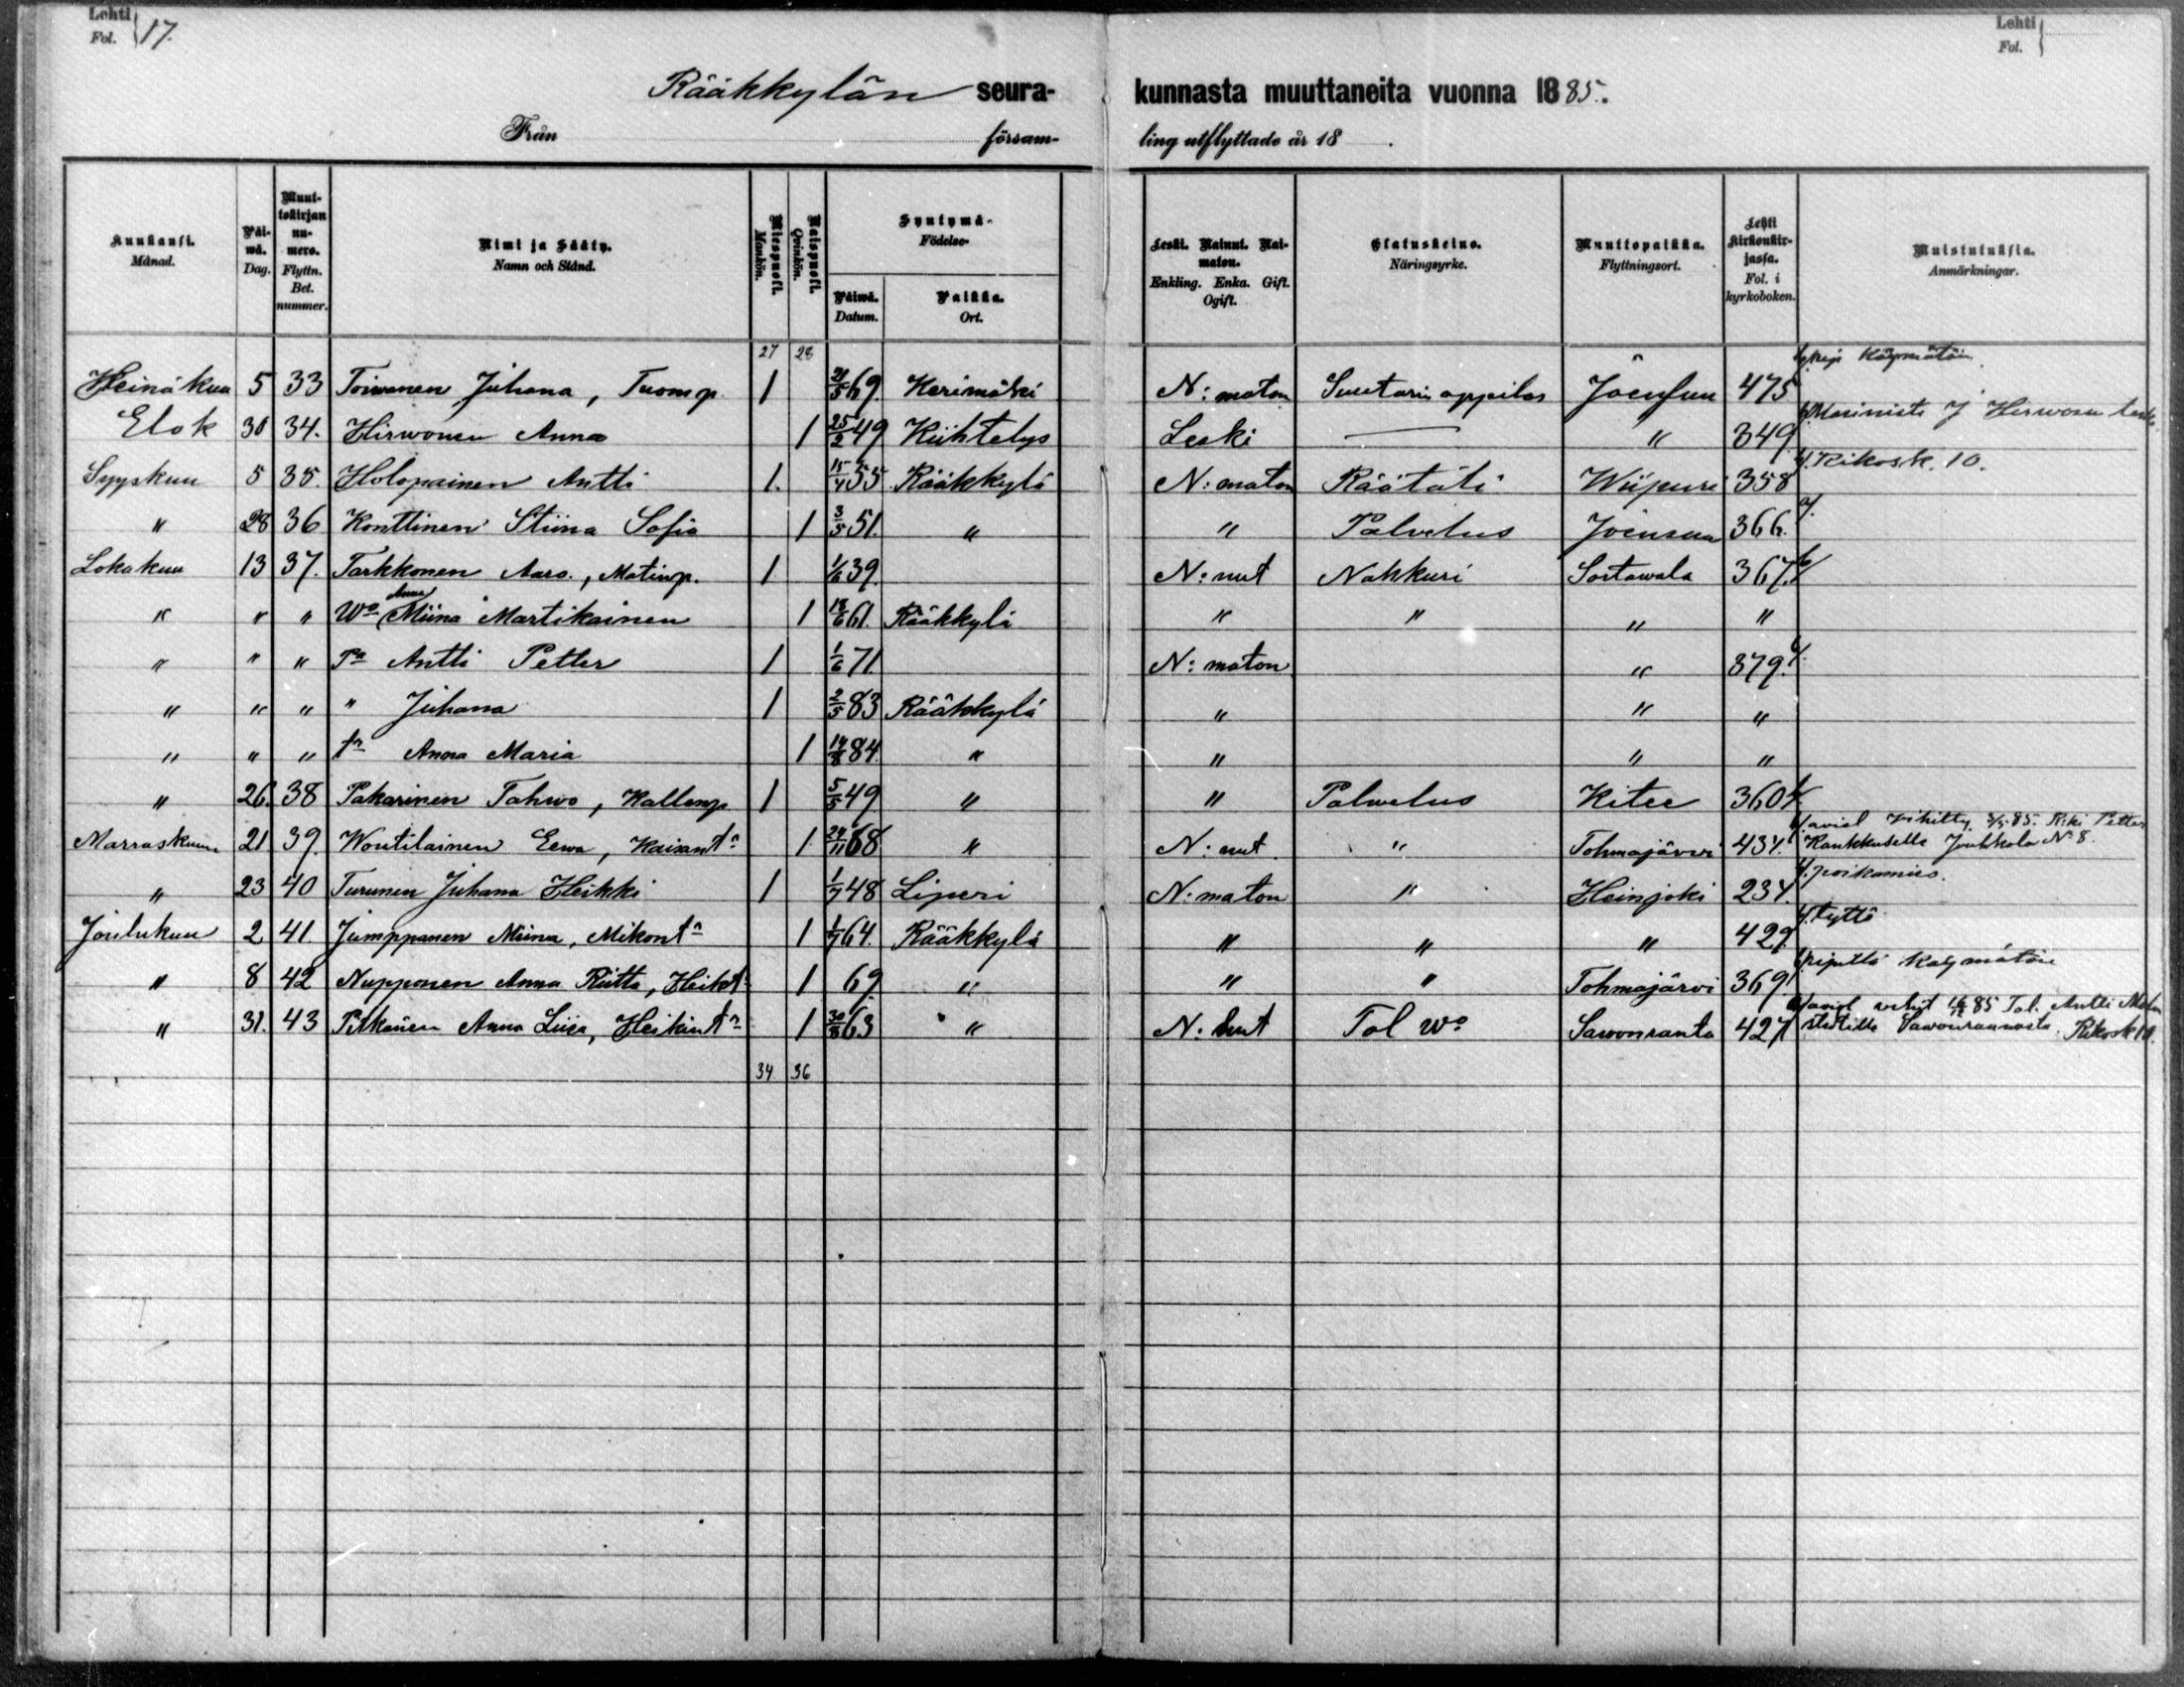 Lehti Fol. 17.
Lehti Fol.
Rääkkylän seura- kunnasta muuttaneita vuonna 1885.
Från försam- ling utflyttade år 18 .
Kuukausi. Månad. Päi-wä. Dag. Muut-tokirjan nu-mero. Flyttn. Bet. nummer. Nimi ja Sääty. Namn och Stånd. Miespuoli. Mankön. Naispuoli. Qvinkön. Syntymä- Födelse- Päiwä. Datum. Paikka. Ort. Leski. Nainut. Nai-maton. Enkling. Enka. Gift. Ogift. Elatuskeino. Näringsyrke. Muuttopaikka. Flyttningsort. Lehti kirkonkir-jassa. Fol. i kyrkoboken. Muistutuksia. Anmärkningar.
27 28
Heinäkuu 5 33 Toiwanen Juhana, Tuom.p. 1 21/5 69 Kerimäki N:maton Suutarin oppilas Joensuu 475 käymätöin
Elok 30 34. Hirwonen Anna 1 25/2 49 Kiihtelys Leski — " 349 Masinisti J Hirwosen leski
Syyskuu 5 35. Holopainen Antti 1. 15/4 55 Rääkkylä N:maton Räätäli Wiipuri 358 Rikosk. 10.
" 28 36 Konttinen Stiina Sofia 1 3/5 51. " " Palvelus Joensuu 366.
Lokakuu 13 37. Tarkkonen Aaro., Matinp. 1 1/6 39. N:nut Nahkuri Sortawala 367.
" " " Wo Anna Miina Martikainen 1 18/6 61. Rääkkylä " " " "
" " " Pa Antti Petter 1 1/6 71. N:maton " 379.
" " " " Juhana 1 2/5 83 Rääkkylä " " "
" " " tr Anna Maria 1 14/8 84. " " " "
" 26. 38 Pakarinen Pahwo, Kallenp 1 5/5 49 " " Palwelus Kitee 360
Marraskuu 21 39. Woutilainen Eewa, Kaisan tr 1 24/11 68 " N:nut. " Tohmajärwi 434. aviol vihitty 85. Petter Raukkuselle Jouhkola No 8.
" 23 40 Turunen Juhana Heikki 1 1/7 48 Liperi N:maton " Heinjoki 234. poikamies.
Joulukuu 2 41. Jumppanen Miina, Mikon tr 1 1/7 64. Rääkkylä " " " 429. tyttö
" 8 42 Nupponen Anna Riitta, Heik.t 1 69 " " " Tohmajärvi 369 ripillä käymätöin
" 31. 43 Pitkänen Anna Liisa, Heikin tr 1 30/8 63 " N:nut Tal wo Sawonranta 427 aviol 85 Tal. Antti Sawonrannasta. Rikosk 10.
34 36